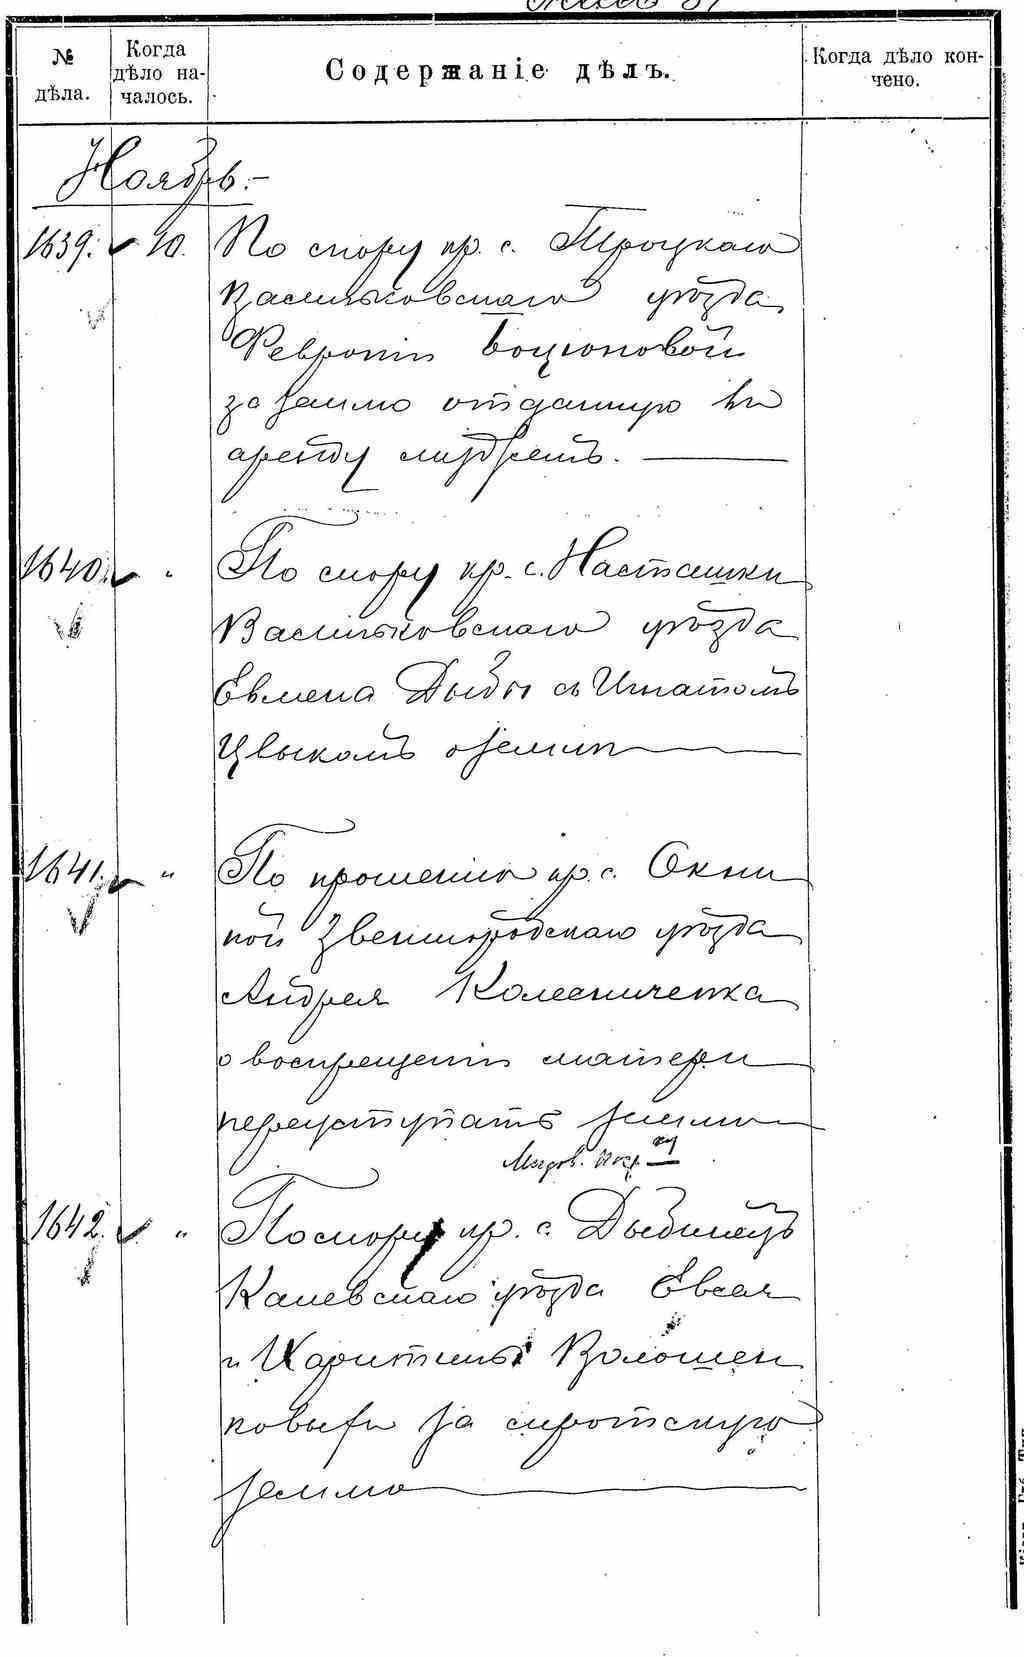 № дѣла.
Когда дѣло на-
чалось.
Содержаніе дѣлъ.
Когда дѣло кон-
чено.
Ноябрь.-
1639. 10. По спору кр. с. Троцкаго
Васильковскаго уѣзда
Февроніи Боцюновой
за землю отданную въ
аренду
1640. " По спору кр. с. Насташки
Васильковскаго уѣзда
Евмена Дыбы съ Игнатомъ
Цвыкомъ о земли
1641. " По прошенію кр. с. Окни
ной Звенигородскаго уѣзда
Андрея Колесниченка
о воспрещеніи матери
переуступать землю
1642. " По спору кр. с. Дыбинецъ
Каневскаго уѣзда Евсея
и Харитины Волошен
ковыхъ за сиротскую
землю